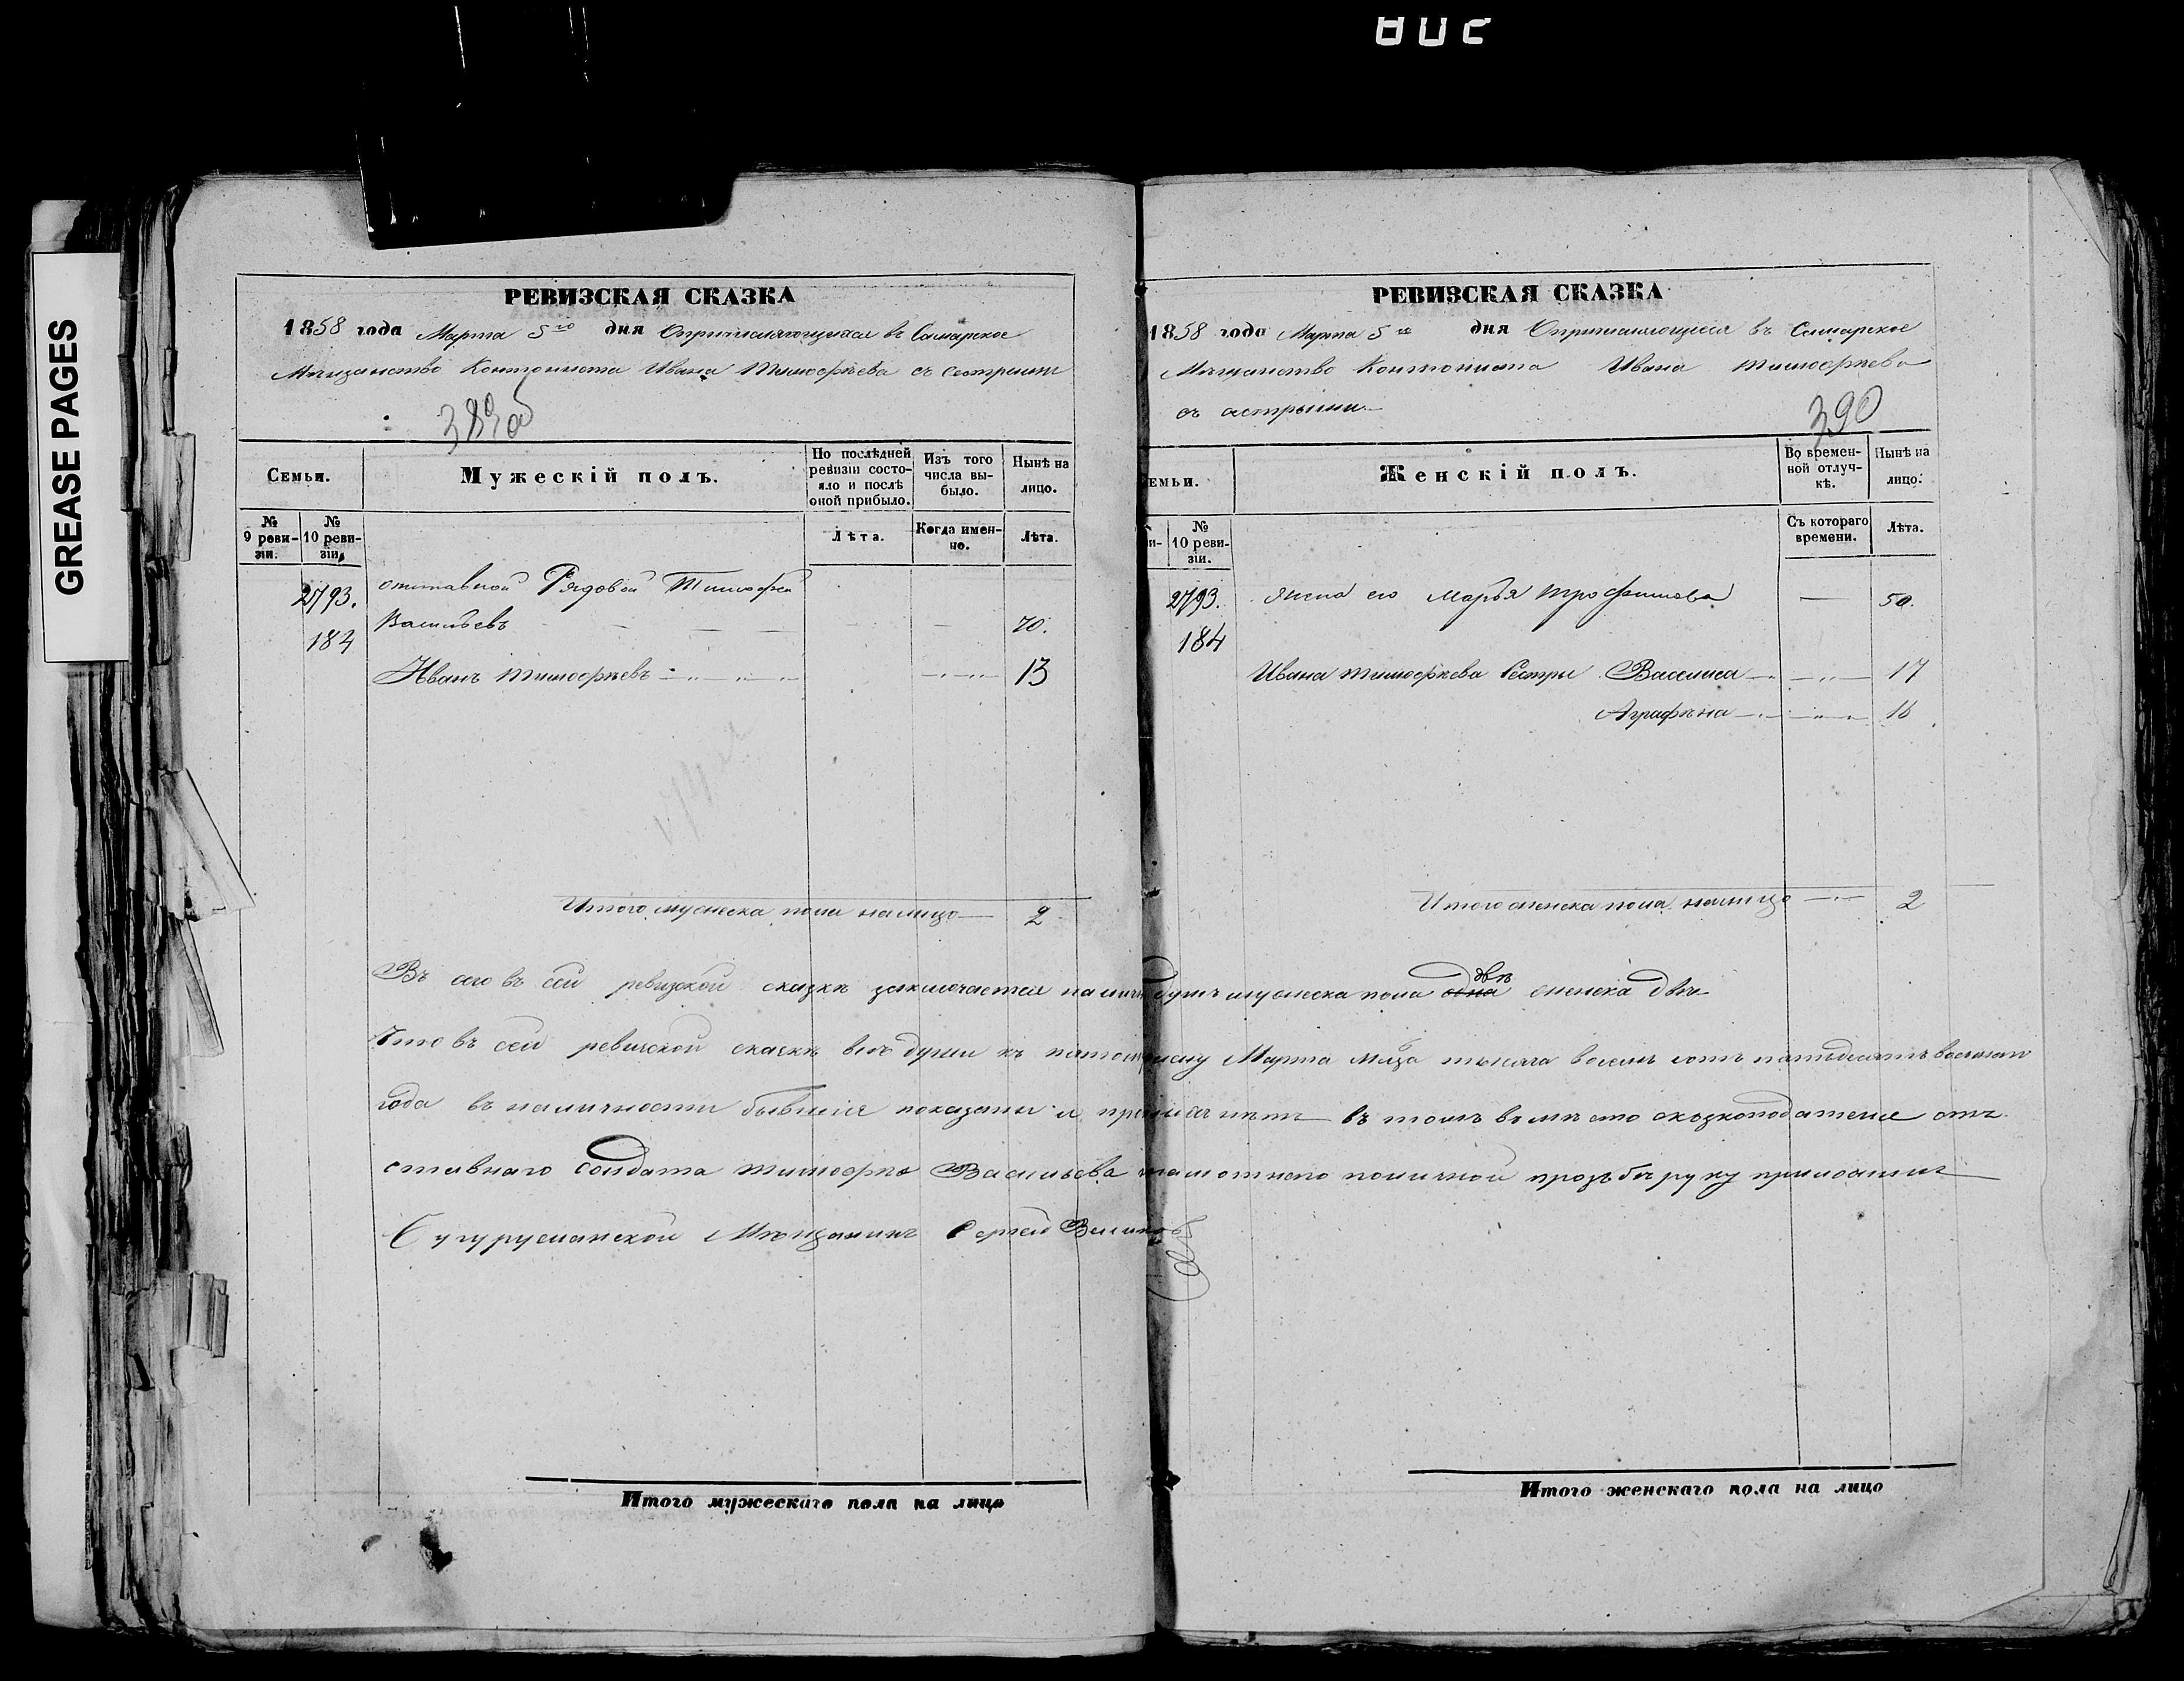 802
GREASE PAGES
РЕВИЗСКАЯ СКАЗКА
1858 года Марта 5го дня Опричисляющихся въ Самарское
Мѣщанство Контониста Ивана Тимофѣева съ сестрами
389об
Семьи.
Мужескій полъ.
По послѣдней ревизіи состояло и послѣ оной прибыло.
Изъ того числа выбыло.
Нынѣ на лицо.
№ 9 ревизіи.
№ 10 ревизіи.
Лѣта.
Когда именно.
Лѣта.
2793. отставной Рядовой Тимофей
184 Васильевъ 70.
Иванъ Тимофѣевъ 13
Итого мужеска пола налицо 2
РЕВИЗСКАЯ СКАЗКА
1858 года Марта 5го дня Опричисляющихся въ Самарское
Мѣщанство Контониста Ивана Тимофѣева
съ сестрыми
390
емьи.
Женскій полъ.
Во временной отлучкѣ.
Нынѣ на лицо.
№ 10 ревизіи.
Съ котораго времени.
Лѣта.
2793. Жена его Марья Трофимова 50.
184
Ивана Тимофѣева Сестры Василиса 17
Аграфѣна 16
Итого женска пола налицо 2
Въ сего въ сей ревизской сказкѣ заключается налично душъ мужеска пола одна двѣ женска двѣ
Что въ сей ревизской сказкѣ всѣ души къ пятому числу Марта мѣца тысяча восемь сотъ пятьдесятъ восьмаго
года въ наличности бывшіе показаны и прописныхъ нѣтъ въ томъ вомѣсто сказкоподателя от
ставнаго солдата Тимофѣя Васильева по личной прозьбѣ руку приложилъ
Бугурусланской Мѣщанинъ Сергей
Итого мужескаго пола на лицо
Итого женскаго пола на лицо